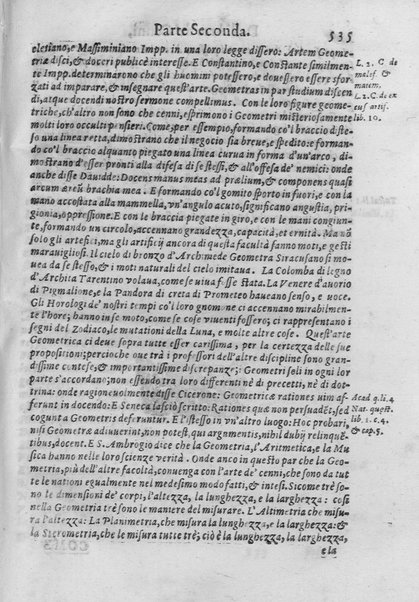 Parte Seconda. 535
olestiano, e Massiminiano Impp. in una loro legge dissero: Artem Geome-
triæ disci, & doceri publicè interesse. E Constantino, e Constante similmen-
te Impp. determinarono che gli huomini potessero, e douessero essere sfor-
zati ad imparare, & insegnare quest'arte. Geometras in par studium discen
di, atque docendi nostro sermone compellimus. Con le loro figure geome-
triche, ch'altro non sono che cenni, esprimono i Geometri misteriosamente
molti loro occulti pensieri. Come, per essempio, formando co'l braccio diste-
so una linea retta, dimostrano che il negocio sia breue, e spedito: e forman-
do co'l braccio alquanto piegato una linea curua in forma d'un'arco, di-
mostrano d'esser pronti alla difesa di se stessi, & all'offesa de' nemici: onde
anche disse Dauidde: Docens manus meas ad prælium, & componens quasi
arcum æreũ brachia mea. E formando co'l gomito sporto in fuori, e con la
mano accostata alla mammella, vn'angulo acuto, significano angustia, pri-
gionia, oppressione. E con le braccia piegate in giro, e con le mani congiun-
te, formando un circolo, accennano grandezza, capacità, et eternità. Ma nõ
solo gli artefici, ma gli artificij ancora di questa facultà fanno moti, e gesti
marauigliosi. Il cielo di bronzo d'Archimede Geometra Siracusano si mo-
uea da se stesso, & i moti naturali del cielo imitaua. La Colomba di legno
d'Archita Tarentino volaua, come se viua fosse stata. La Venere d'auorio
di Pigmalione, e la Pandora di creta di Prometeo haueano senso, e voce.
Gli Horologi de' nostri tempi co'l loro gnomone ci accennano mirabilmen-
te l'hore; hanno in se moto, come se cose viuenti fossero; ci rappresentano i
segni del Zodiaco, le mutationi della Luna, e molte altre cose. Quest'arte
Geometrica ci deue sopra tutte esser carissima, per la certezza delle sue
propositioni; percioche oue trà i professori dell'altre discipline sono gran-
dissime contese, & importantissime discrepanze; i Geometri soli in ogni lor
parte s'accordano; non essendo tra loro differenti nè di precetti, nè di dot-
trina: onde ragioneuolmente disse Cicerone: Geometricæ rationes uim af-
ferunt in docendo: E Seneca lasciò scritto: Rationes quæ non persuadẽt, sed
cogunt Geometris deferuntur. E l'istesso in vn'altro luogo: Hoc probari,
nisi Geometriæ adiuuerint, non potest, qui argumentis, nihil dubij relinquẽ-
tibus, docent. E S. Ambrogio dice che la Geometria, l'Aritmetica, e la Mu
sica hanno nelle loro scienze verità. Onde anco in questo par che la Geo-
metria, più dell'altre facoltà, conuenga con l'arte de' cenni, che sono da tut
te le nationi egualmente nel medesimo modo fatti, & intesi. Si come trè so-
no le dimensioni de' corpi, l'altezza, la lunghezza, e la larghezza: così
nella Geometria trè sono le maniere del misurare. L'Altimetria che misura
l'altezza: La Planimetria, che misura la lunghezza, e la larghezza: &
la Sicrometria, che le misura tutte trè; ciò è la lunghezza, la larghezza,
e la
L. 2. C. de
malef. &
matum.
L. 2. C. de ex
cus artif.
lib. 10.
Acad q. li. 4
Nat. quest.
lib. 1. c. 4.
& cap. 5.